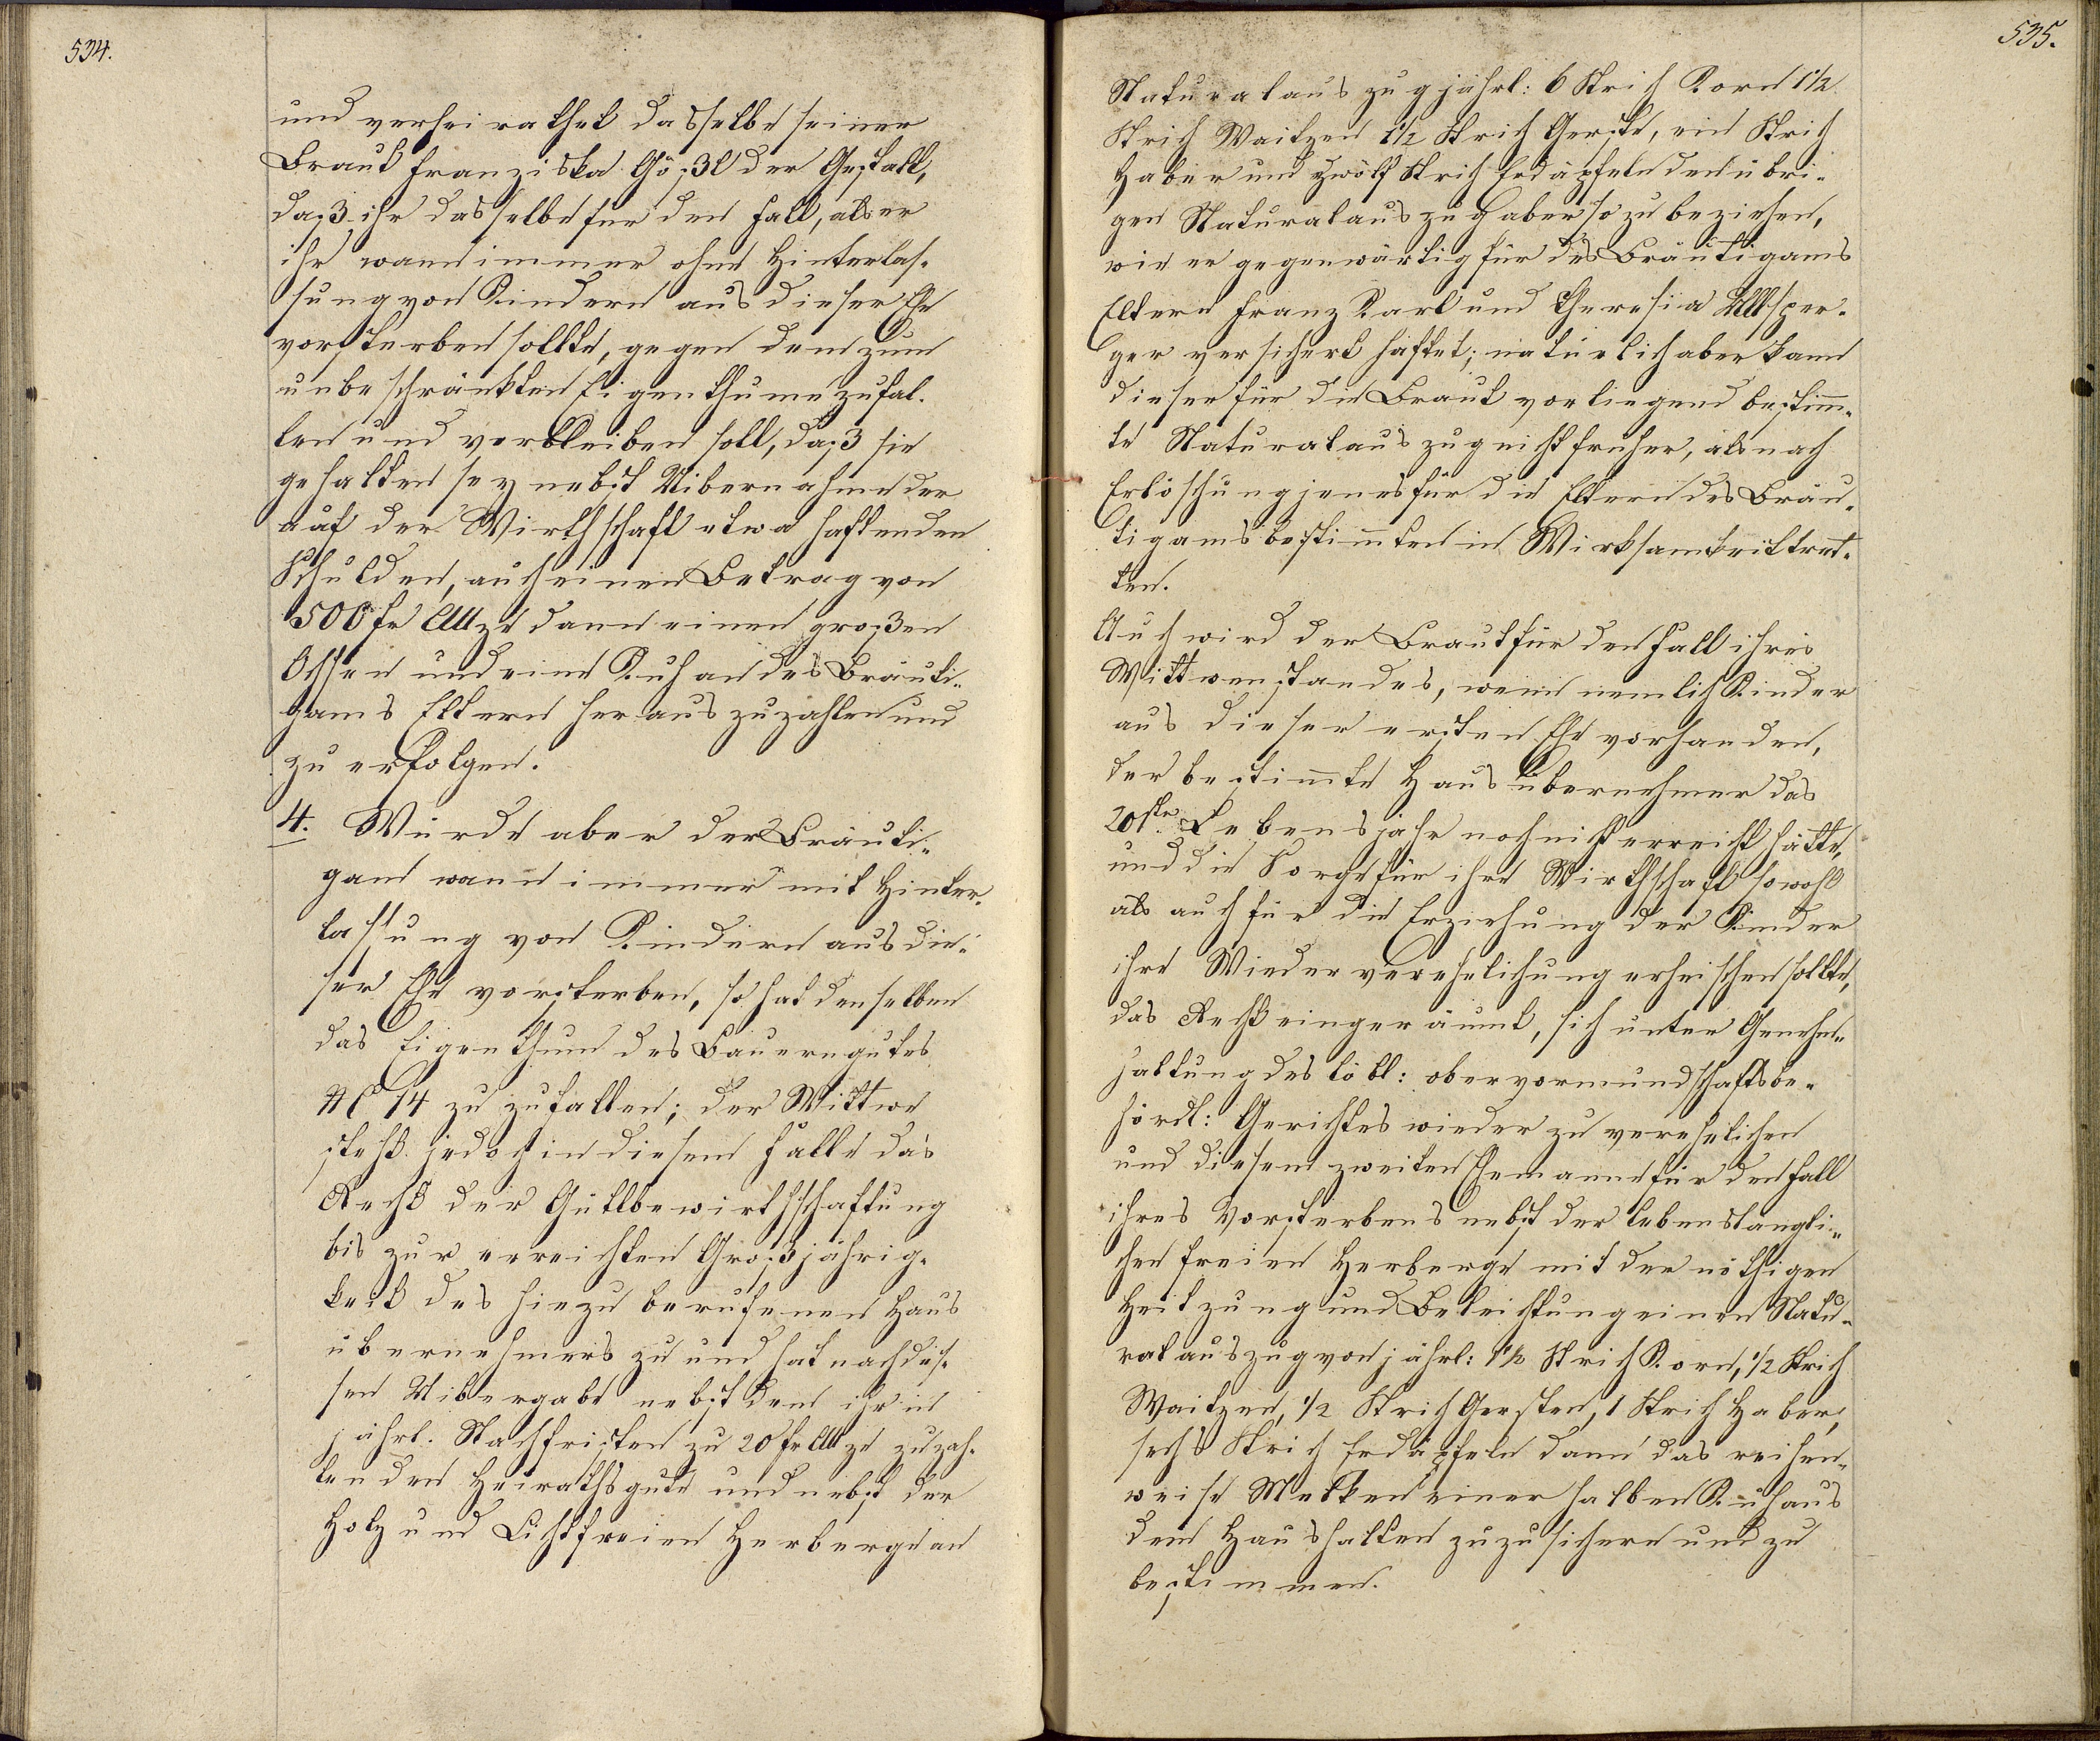 534.
und verheirathet dasselbe seiner
Braut Franziska Gößl der Gestalt,
daß ihr dasselbe für den Fall, als er
ihr wann immer ohne Hinterlas-
sung von Kindern aus dieser Ehe
vorsterben sollte, gegen dem zum
unbeschränkten Eigenthume zufal-
len und verbleiben soll, daß sie
gehalten sey nebst Uibernahme der
auf der Wirthschaft etwa haftenden
Schulden, auch einen Betrag von
500 fr CMze dann einen großen
Ochsen und eine Kuh an des Bräuti-
gams Eltern herauszuzahlen und
zu erfolgen.
4. Würde aber der Bräuti-
gam wann immer mit Hinter-
lassung von Kindern aus die-
ser Ehe vorsterben, so hat denselben
das Eigenthum des Bauerngutes
NC 14 zu zufallen; der Wittwe
steht jedoch in diesem Falle das
Recht der Gutsbewirthschaftung
bis zur erreichten Großjährig-
keit des hiezu berufenen Haus
übernehmers zu und hat nach des-
sen Uibergabe nebst dem ihr in
jährl. Nachfristen zu 20 fr CMze zu zah-
lenden Heirathsgute und nebst der
Holz und Lichtfreien Herberge an
535.
Naturalauszug jährl: 6 Strich Korn 1½
Strich Waitzen 1½ Strich Gerste, ein Strich
Haber und zwölf Strich Erdäpfeln den übri-
gen Naturalauszug aber so zu beziehen,
wie er gegenwärtig für des Bräutigams
Eltern Franz Karl und Theresia Ullsper-
ger versichert haftet; natürlich aber kann
dieser für die Braut vorliegend bestimm-
te Naturalauszug nicht früher, als nach
Erlöschung jenes für die Eltern des Bräu-
tigams bestimmten in Wirksamkeit tret-
ten.
Auch wird der Braut für den Fall ihres
Wittwenstandes, wenn nemlich Kinder
aus dieser ersten Ehe vorhanden,
der bestimmte Hausübernehmer das
20ste Lebensjahr noch nicht erreicht hätte,
und die Sorge für ihre Wirthschaft sowohl
als auch für die Erziehung der Kinder
ihre Wiederverehelichung erheischen sollte,
das Recht eingeräumt, sich unter Genehm-
haltung des löbl: obervormundschaftsbe-
hördl: Gerichtes wieder zu verehelichen
und diesem zweiten Ehemanne für den Fall
ihres Vorsterbens nebst der lebenslängli-
chen freien Herberge mit der nöthigen
Heitzung und Beleichtung einen Natu-
ralauszug von jährl: 1½ Strich Korn, ½ Strich
Waitzen, ½ Strich Gersten, 1 Strich Haber,
sechs Strich Erdäpfeln dann das reihen-
weise Melken einer halben Kuh aus
dem Haushalten zuzusichern und zu
bestimmen.